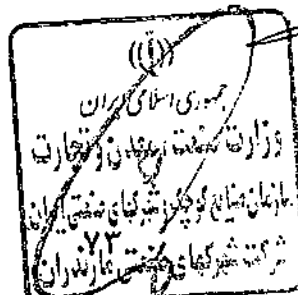 جمهوری اسلامی ایران
وزارت صنعت، معدن و تجارت
سازمان صنایع کوچک و شهرکهای صنعتی ایران
۷۳
شرکت شهرکهای صنعتی مازندران